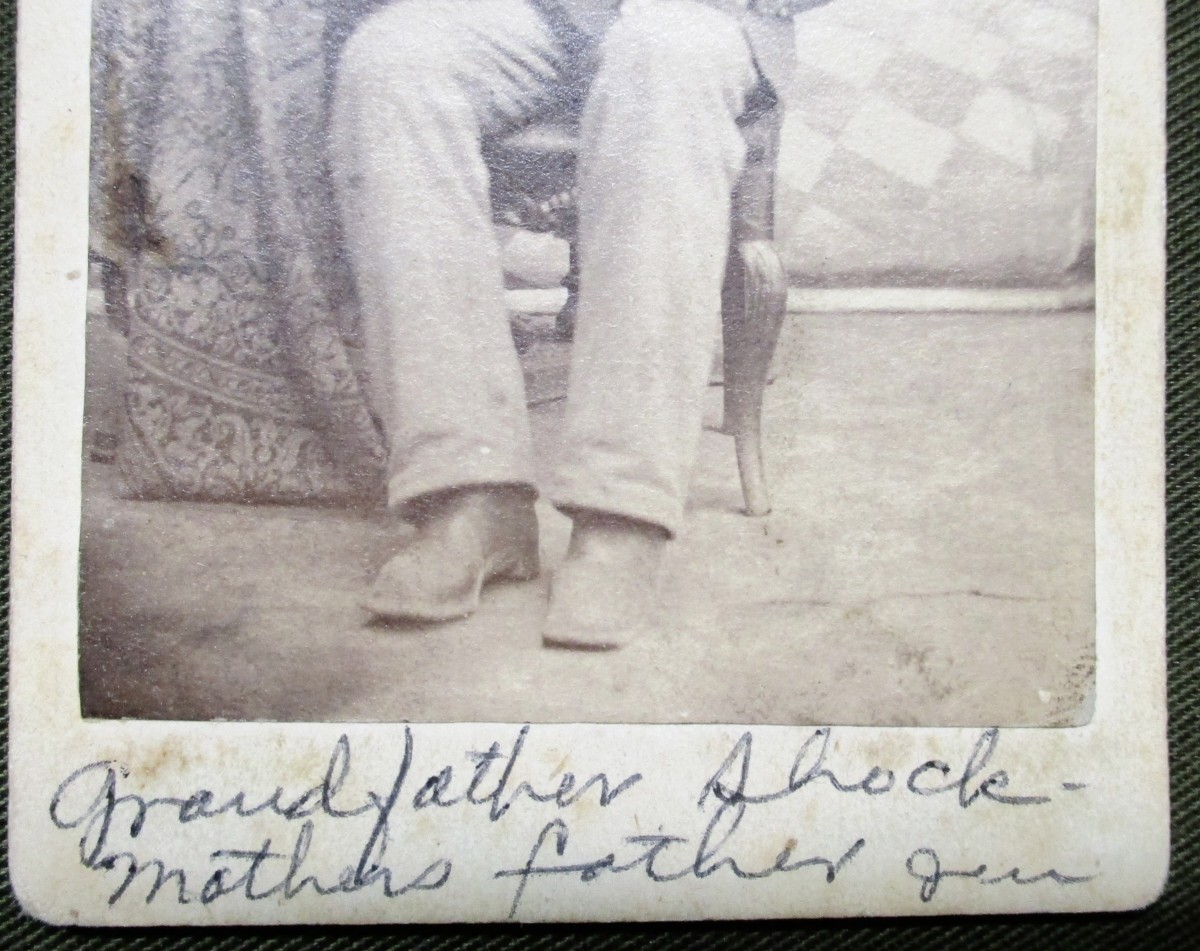 Grandfather Shock-
Mothers father